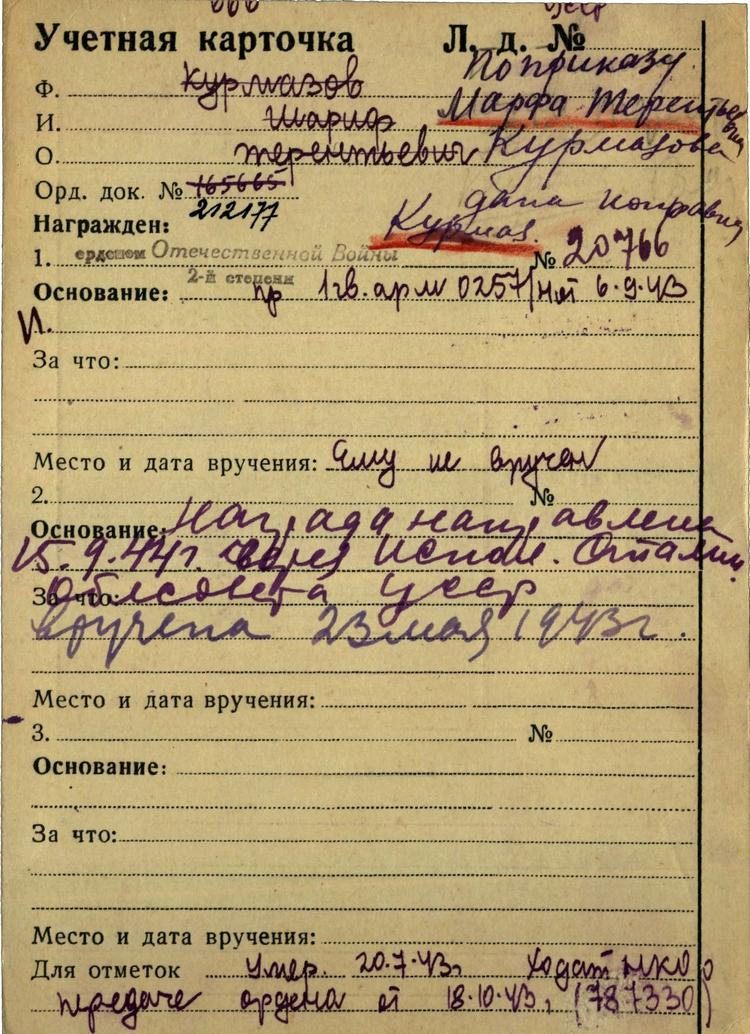 Учетная карточка Л. д. №
По приказу
Ф. Курмазов
Марфа Терентьевна
И. Шариф
О. Терентьевич Курмазова
Орд. док. № 165665
212177
дана
Награжден:
Курмаз.
1. орденом Отечественной Войны № 20766
2-й степени
Основание: пр 1гв. арм 0257/н от 6.9.43
И.
За что:
Место и дата вручения: Ему не вручен
2. №
Основание: Награда направлена
15.9.44г. через Испол. Сталин.
За что: облсовета УССР
вручена 23 мая 1943г.
Место и дата вручения:
3. №
Основание:
За что:
Место и дата вручения:
Для отметок Умер. 20.7.43г. Ходат НКО о
передаче ордена от 18.10.43г. (787330)